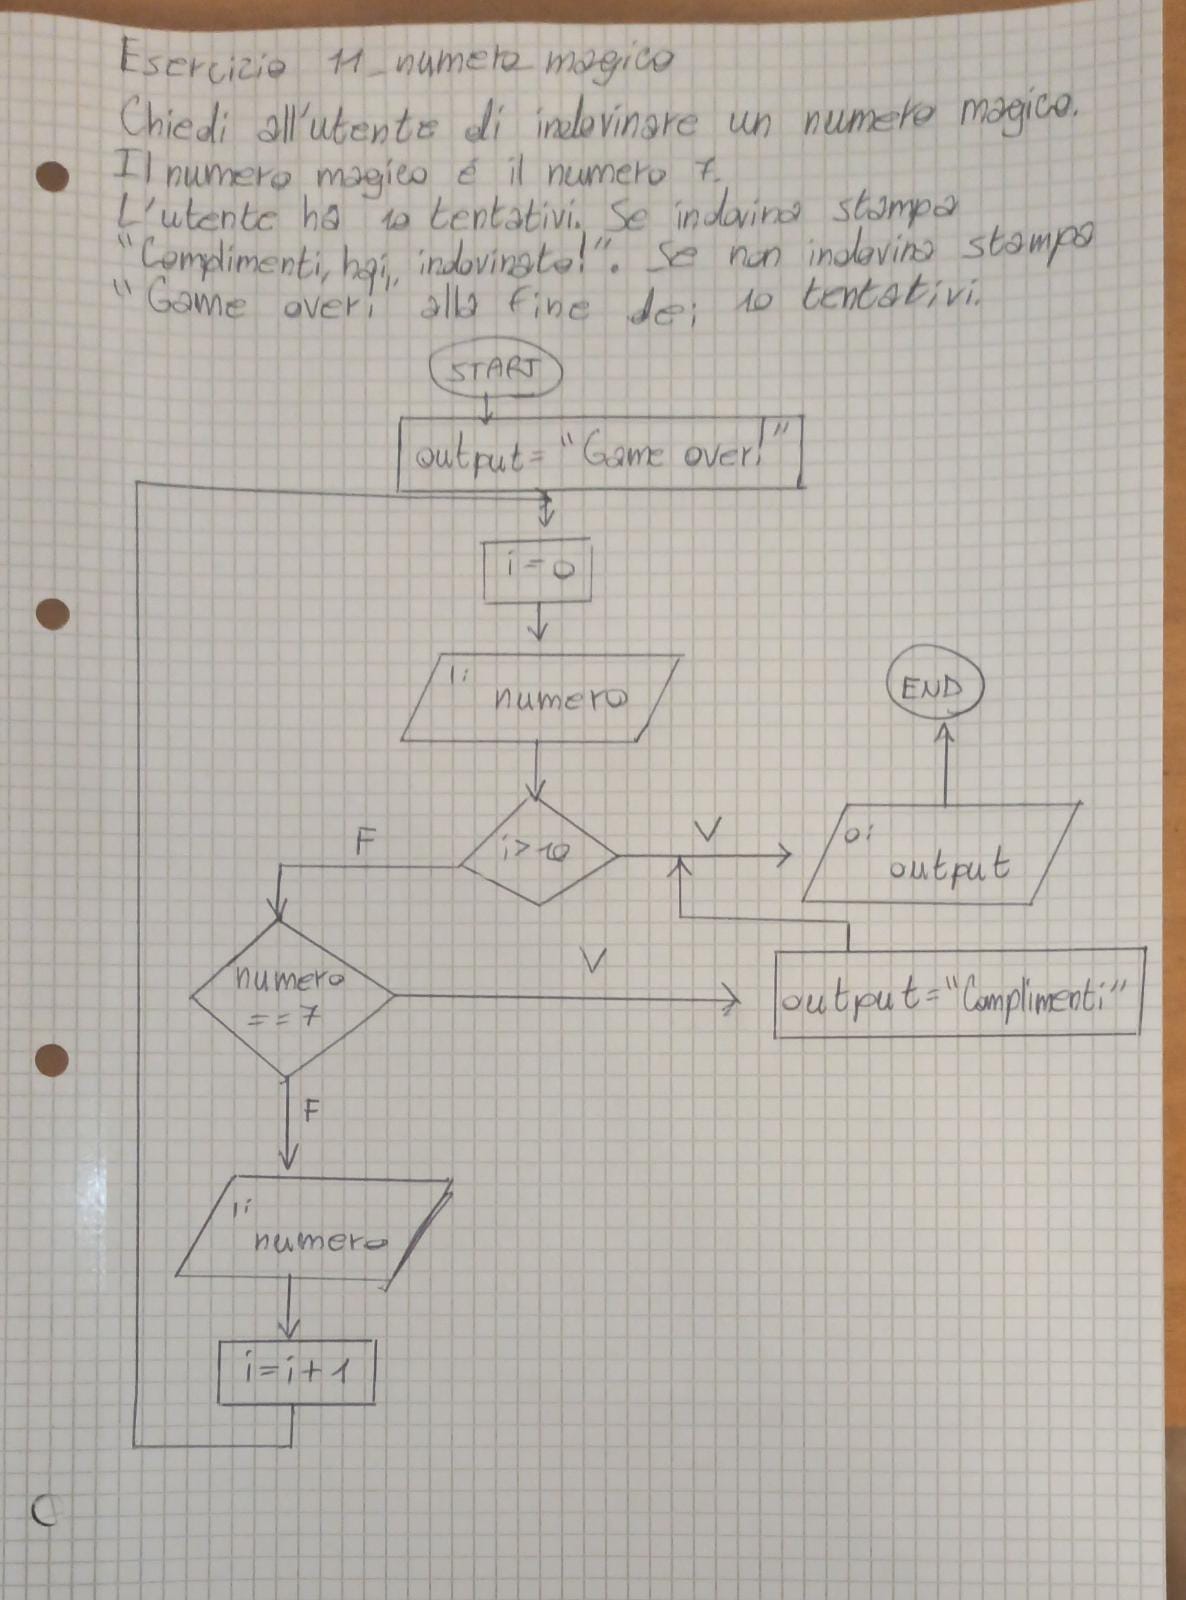 Esercizio 11_numero magico
Chiedi all'utente di indovinare un numero magico.
Il numero magico é il numero 7.
L'utente ha 10 tentativi. Se indovina stampa
"Complimenti, hai indovinato!". Se non indovina stampa
"Game over! alla fine dei 10 tentativi.
START
output= "Game over!"
i=0
I: numero
i>10
F
V
O: output
END
numero
==7
V
output="Complimenti"
F
I: numero
i=i+1